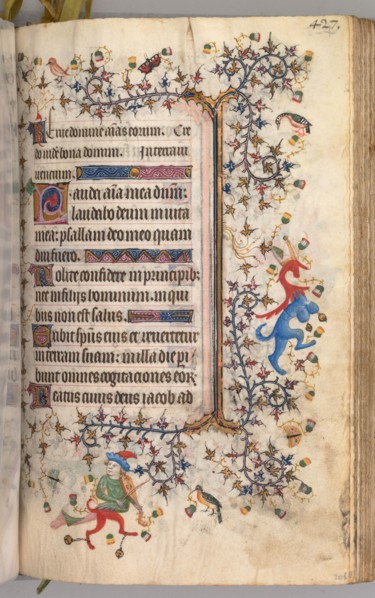 427,
Ne eruedomine aīas eorum. Cre
do uidē bona domini. In terram
uiuencium.
Lauda aīa mea dnm̄:
laudabo deum in uita
mea: psallam deo meo quam
diu fuero.
Nolite confidere in principib;
ne in filijs hominum: in qui
bus non est salus.
Exibit spūs eius et reuertetur
in terram suam: in illa die pi
bunt omnes cogitaciones eor
Beatus cuius deus iacob ad